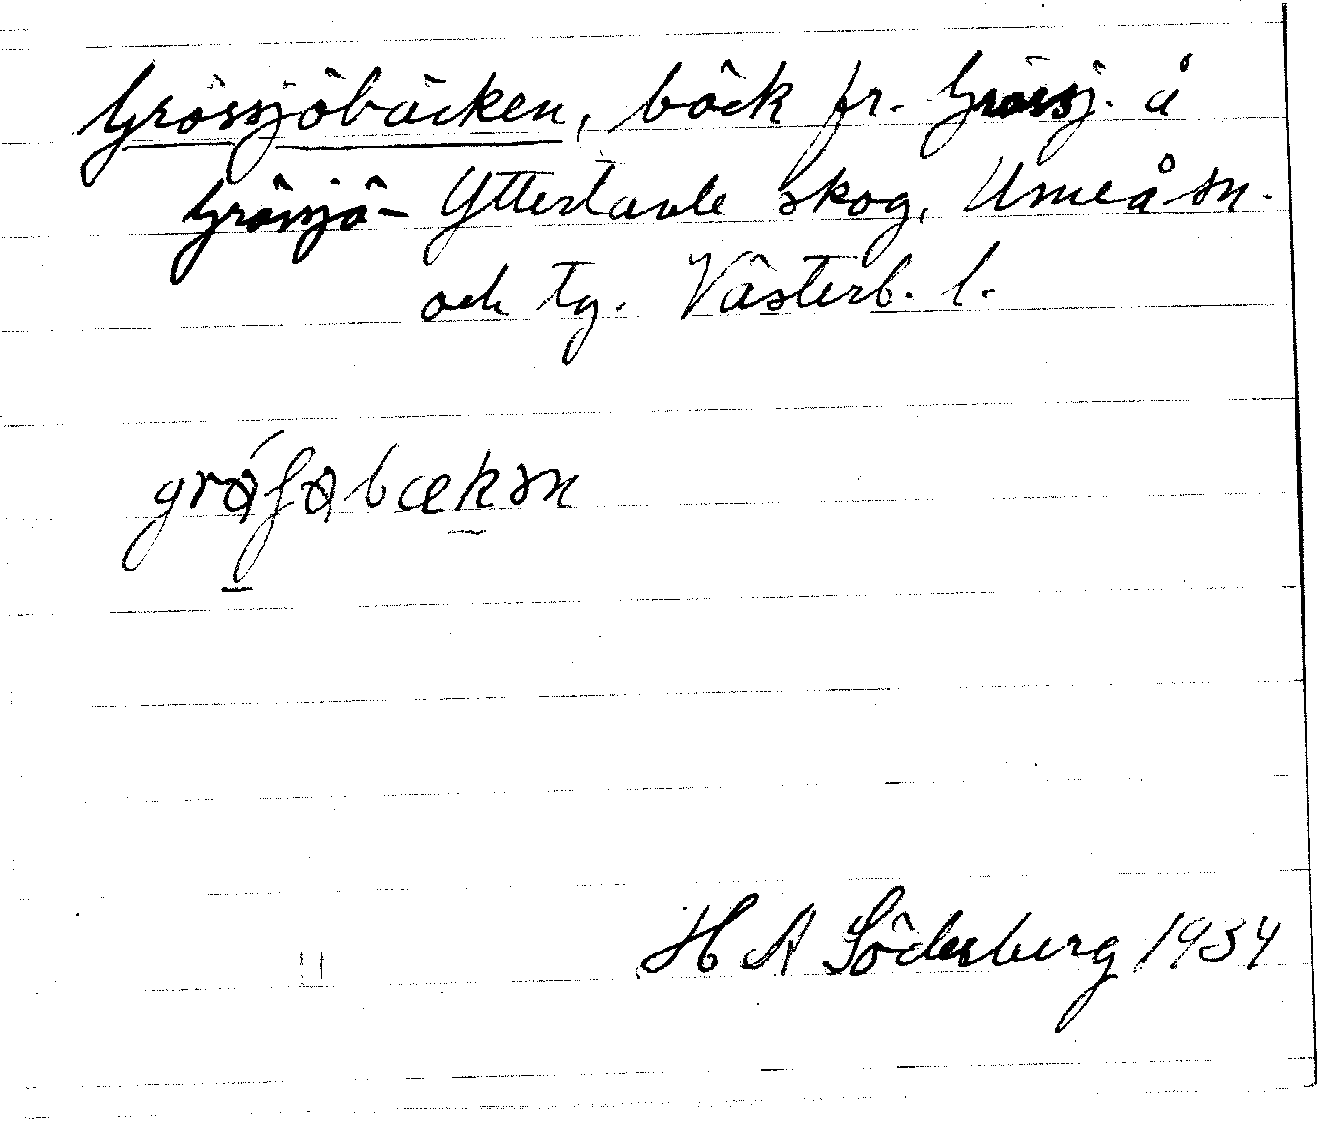 Grössjöbäcken, bäck fr. Grössj. å
Grössjö- Yttertavle skog, Umeå sn.
och tg. Västerb. l.
H A Söderberg 1934